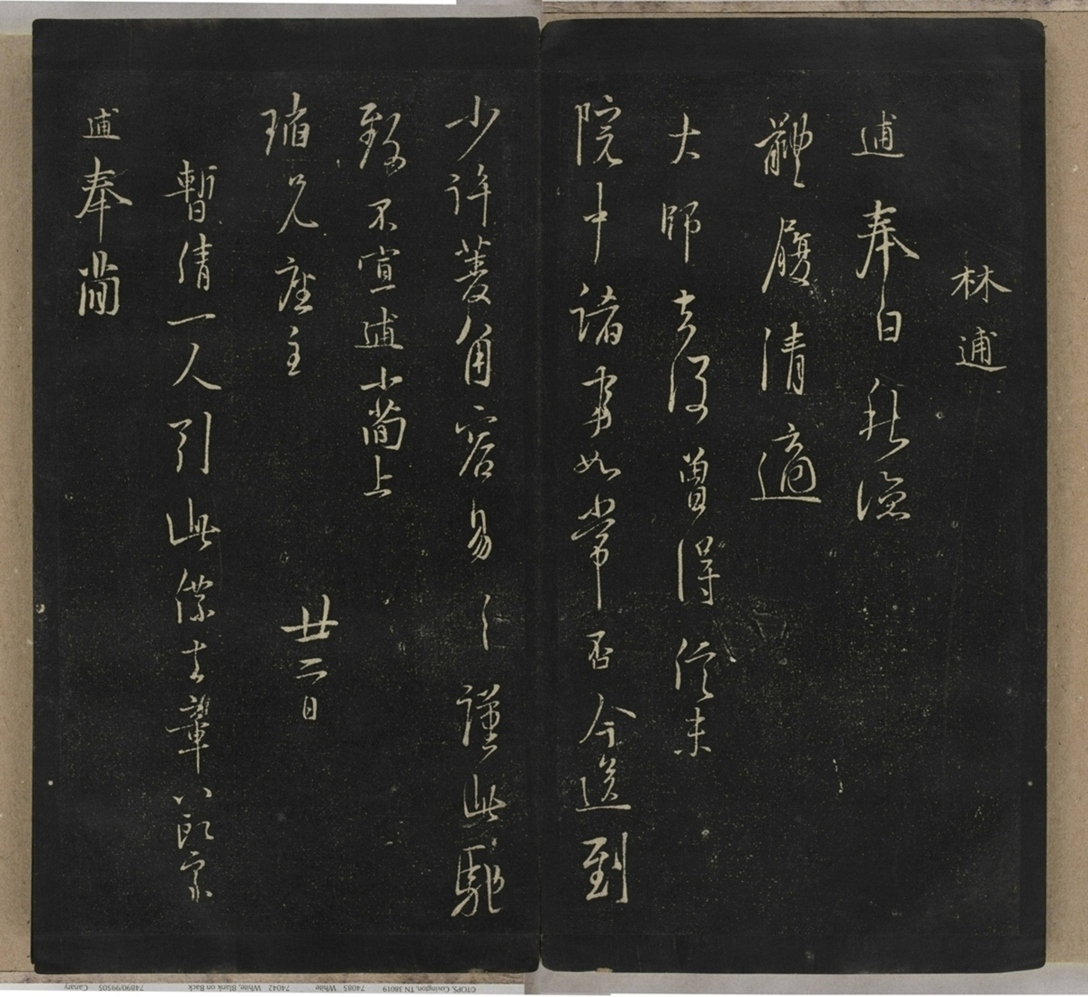 林逋
逋奉白秋涼
體履清適
大師去後曾得信未
院中諸事如常否今送到
少許菱角容易〻謹此馳
致不宣逋小簡上
瑎兄座主
廿二日
暫倩一人引此僕去章八郎家
逋奉簡